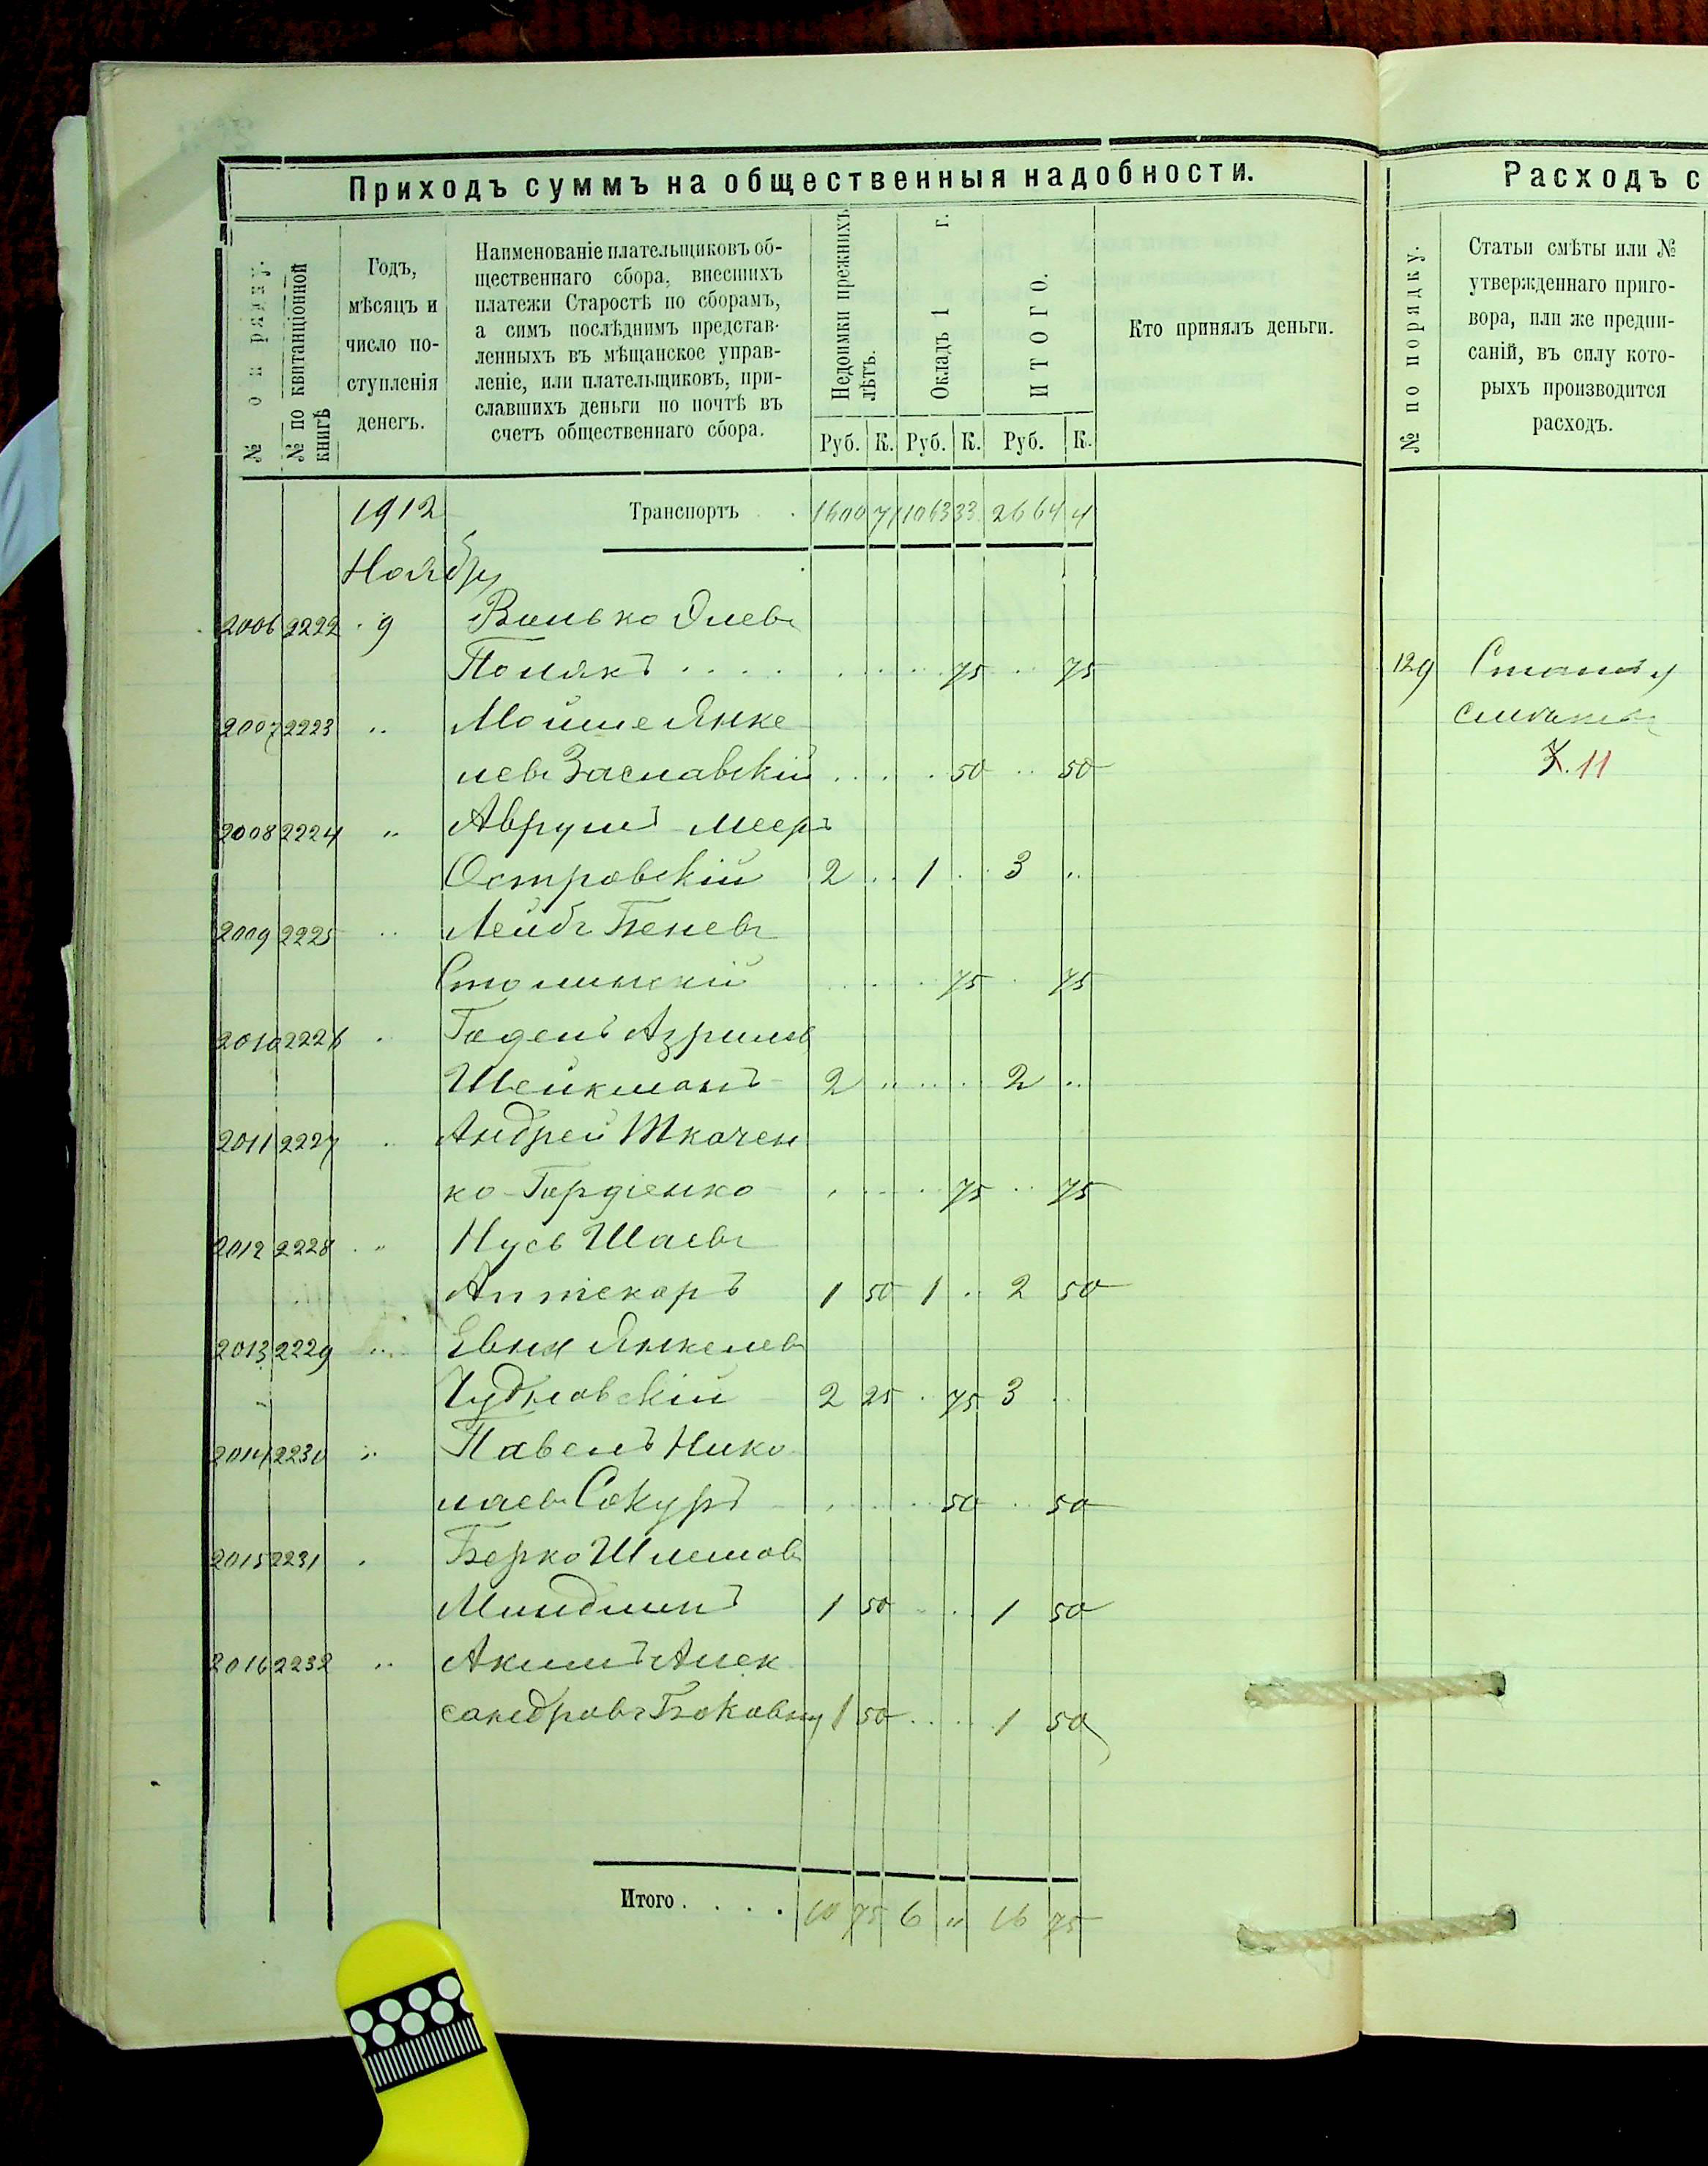 Приходъ суммъ на общественныя надобности.
№ по рядку.
№ по квитанціонной книгѣ
Годъ, мѣсяцъ и число поступленія денегъ.
Наименованіе плательщиковъ об-
щественнаго сбора, внесшихъ
платежи Старостѣ по сборамъ,
а симъ послѣднимъ представ-
ленныхъ въ мѣщанское управ-
леніе, или плательщиковъ, при-
славшихъ деньги по почтѣ въ
счетъ общественнаго сбора.
Недоимки прежнихъ лѣтъ.
Окладъ 1 г.
ИТОГО.
Кто принялъ деньги.
Руб. К. Руб. К. Руб. К.
1912 Транспортъ 1600 71 1063 33 2664 4
Ноябрь
2006 2222 9 Волько
Полякъ 75 75
2007 2223 " Мойше Янке
лев Заславскій 50 50
2008 2224 " Аврумъ Меер
Островскій 2 .. 1 .. 3 ..
2009 2225 " Лейбъ Бенев
Столинскій 75 75
2010 2226 " Годель Азрилев
Шейкманъ 2 .. .. 2 ..
2011 2227 " Андрей Ткачен
ко-Гордіенко 75 75
2012 2228 " Нусь Шаев
Аптекаръ 1 50 1 .. 2 50
2013 2229 " Янкелев
Чудновскій 2 25 . 75 3 ..
2014 2230 " Павелъ Нико
лаев Сокуръ 50 50
2015 2231 " Берко Шлемов
Миндлинъ 1 50 .. 1 50
2016 2232 " Акимъ Алек
сандров 1 50 .. 1 50
Итого.... 10 75 6 " 16 75
Расходъ с
№ по порядку.
Статьи смѣты или №
утвержденнаго приго-
вора, или же предпи-
саній, въ силу кото-
рыхъ производится
расходъ.
129
11